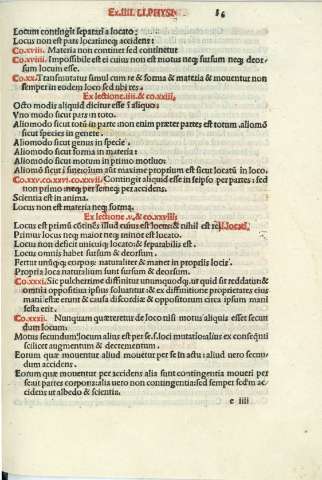 Ex.IIII. LI. PHYSI
Locum contingit separari a locato:
Locus non est pars locati neq̃ accidens:
Co.xviii. Materia non continet sed continetur
Co.xviiii. Impossibile est ei cuius non est motus neq̃ sursum neq̃ deorsum
locum esse.
Co.xx. Transmutatur simul cum re & forma & materia & moventur non
semper in eodem loco sed ubi res.
Ex lectione.iiii. & co.xxiii.
Octo modis aliquid dicitur esse ĩ aliquo:
Uno modo sicut pars in toto.
Aliomodo sicut totũ in parte non enim præter partes est totum. aliomõ
sicut species in genere.
Aliomodo sicut genus in specie.
Aliomodo sicut forma in materia:
Aliomodo sicut motum in primo motivo:
Aliomodo sicut ĩ
Co.xxv.co.xxvi.co.xxvii. Contingit aliquid esse in seipso per partes: sed
non primo neq̃ per se neq̃ per accidens.
Scientia est in anima.
Locus non est materia neq̃ forma.
Ex lectione.v. & co.xxviiii:
Locus est primo cõtinẽs illud cuius est locus: & nihil est rei locati.
Primus locus neq̃ maior est neq̃ minor locato:
Locus non deficit unicuiq; locato: & separabilis est.
Locus omnis habet sursum & deorsum.
Fertur unũq̃q; corpo naturaliter & manet in propriis locis.
Propria loca naturalium sunt sursum & deorsum.
Co.xxxi. Sic pulcherrime diffinitur unumquodq; ut quid sit reddatur &
omnia opposita ei ipsius soluantur: & ex diffinitione proprietates eius
manifestæ erunt & causa discordiæ & oppositorum circa ipsum manifesta
erit.
Co.xxxii. Nunquam quæreretur de loco nisi motus aliquis esset secundum
locum.
Motus secundum locum alius est per se .s. loci mutatio alius ex consequẽti
scilicet augmentum & decrementum.
Eorum quæ moventur aliud movetur per se in actu: aliud vero secundum
accidens.
Eorum quæ moventur per accidens alia sunt contingentia moveri per
se ut partes corporis: alia vero non contingentia: sed semper sedm accidens
ut albedo & scientia.
e iiii